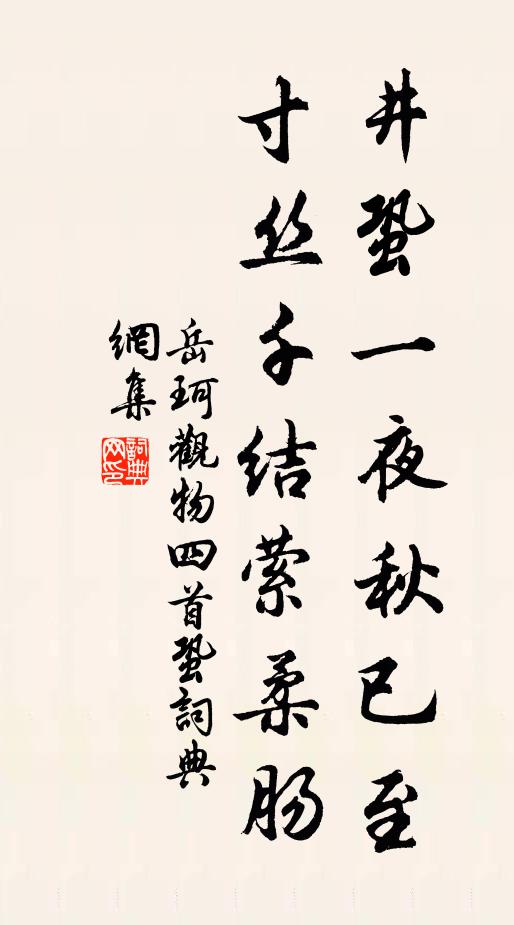 井蛩一夜秋已至
寸丝千结萦柔肠
岳珂觀物四首蛩詞典
網集
詞典网印